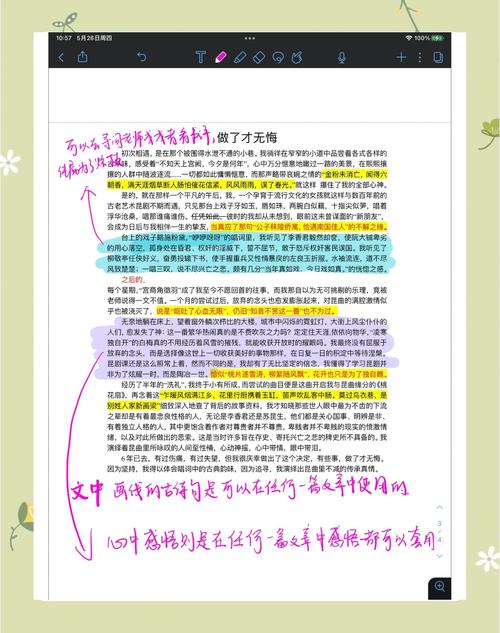 10:57 5月26日周四
100%
可以去寻问老师或者看
做了才无悔
初次相遇，是在那个被围得水泄不通的小巷，我徜徉在窄窄的小道中品尝着各式各样的
味，感受着“不知天上宫阙，今夕是何年”，心中万分惬意地瞰过一路的美景，在熙熙攘
攘的人群中随波逐流……一切都如此慵懒惬意，而那声略带哀婉的情的“金粉未消亡，闻得六
朝香，满天涯烟草断人肠怕催花信紧，风风雨雨，误了春光。”就这样 攥住了我的全部心神。
是的，就在那样一个平凡的午后，我，一个孕育于流行文化的女孩就这样与数百年前的
古老艺术昆剧不期而遇，只见那台上戏子牙如玉，唇如珠，两腕白似藕，十指尖似笋，唱着
浮华沧桑，唱那谁痛谁伤。任凭如此，彼时的我却从未想到，眼前这未曾谋面的“新朋友”，
会成为日后与我相伴一生的挚友，当真应了那句“公子秣陵侨寓，恰遇南国佳人”的不解之缘。
台上的戏子略施粉黛，“咿咿呀呀”的唱词里，我听见了李香君毅然却奁，使阮大铖卑劣
的用心落空，孤身处在昏君、权奸的淫威下，誓不屈节，敢于怒斥权奸害民误国。我听见了
柳敬亭任侠好义，奋勇投辕下书，使手握重兵又性情暴戾的左良玉折服。水袖流连，道不尽
风致楚楚；一唱三叹，说不尽兴亡之悲。颇有几分“当年真如戏，今日戏如真。”的恍惚之感。
之后的，
每个星期，“宫商角徵羽”成了我至今不愿回首的往事，而我那自以为无可挑剔的乐理，竟被
老师说得一文不值。一个月的尝试过后，放弃的念头也愈发膨胀起来，对昆曲的满腔激情似
乎也被浇灭了，说是“呕吐了心血无限”，仍旧“知音不赏这一番”也不为过。
无奈地躺在床上，望着窗外鳞次栉比的大楼，城市中闪烁的霓虹灯，大街上风尘仆仆的
人们，愈发失了神：这一番繁华热闹真的是不费吹灰之力吗？定定住天涯，依依向物华，“凌寒
独自开”的白梅真的不用经历着风雪的摧残，就能收获开放时的耀眼吗。我最终没有屈服于
放弃的念头，而是选择像这世上一切收获美好的事物那样，在日复一日的积淀中等待涅槃。
昆剧课还是这么照常上着，然而不同的是，我却有了无比坚定的信念，我懂得了学习昆剧并
非为了炫耀一时，而是陶冶一世。恰似“桃片逐雪涛，柳絮随风飘”，花开也只是为了独自赏。
经历了半年的“洗礼”，我终于小有所成，而尝试的曲目便是这曲开启我与昆曲缘分的《桃
花扇》，再念着这“乍暖风烟满江乡，花里行厨携着玉缸，笛声吹乱客中肠，莫过乌衣巷，是
别姓人家新画梁”细致深入地查了背后的故事资料，我才知晓那些世人眼中最为不齿的下流
之辈却是有着最忠良性格的人，无论是李香君还是苏昆生，他们都是关心国事、明辨是非、
有着独立人格的人，其中更饱含着作者对尊贵者并不尊贵、卑贱者并不卑贱的现实的愤激情
绪，以及对此所做出的思索。这是当时许多旨在存史、寄托兴亡之悲的稗史所不具备的。我
演绎着昆曲里所咏叹的人间至性情，心动神摇，心中带情，眼中带泪。
6年已去。有过伤痛，有过失望，但我很庆幸做出了这个决定，有些事，做了才无悔。
因为坚持，我得以体会唱词中的古韵韵味，因为追寻，我演绎出昆曲里不减的传承真情。
文中 画线的古诗句是可以在任何一篇文章中使用的
心中感悟则是在任何一篇文章中感悟都可以套用
3
/
4